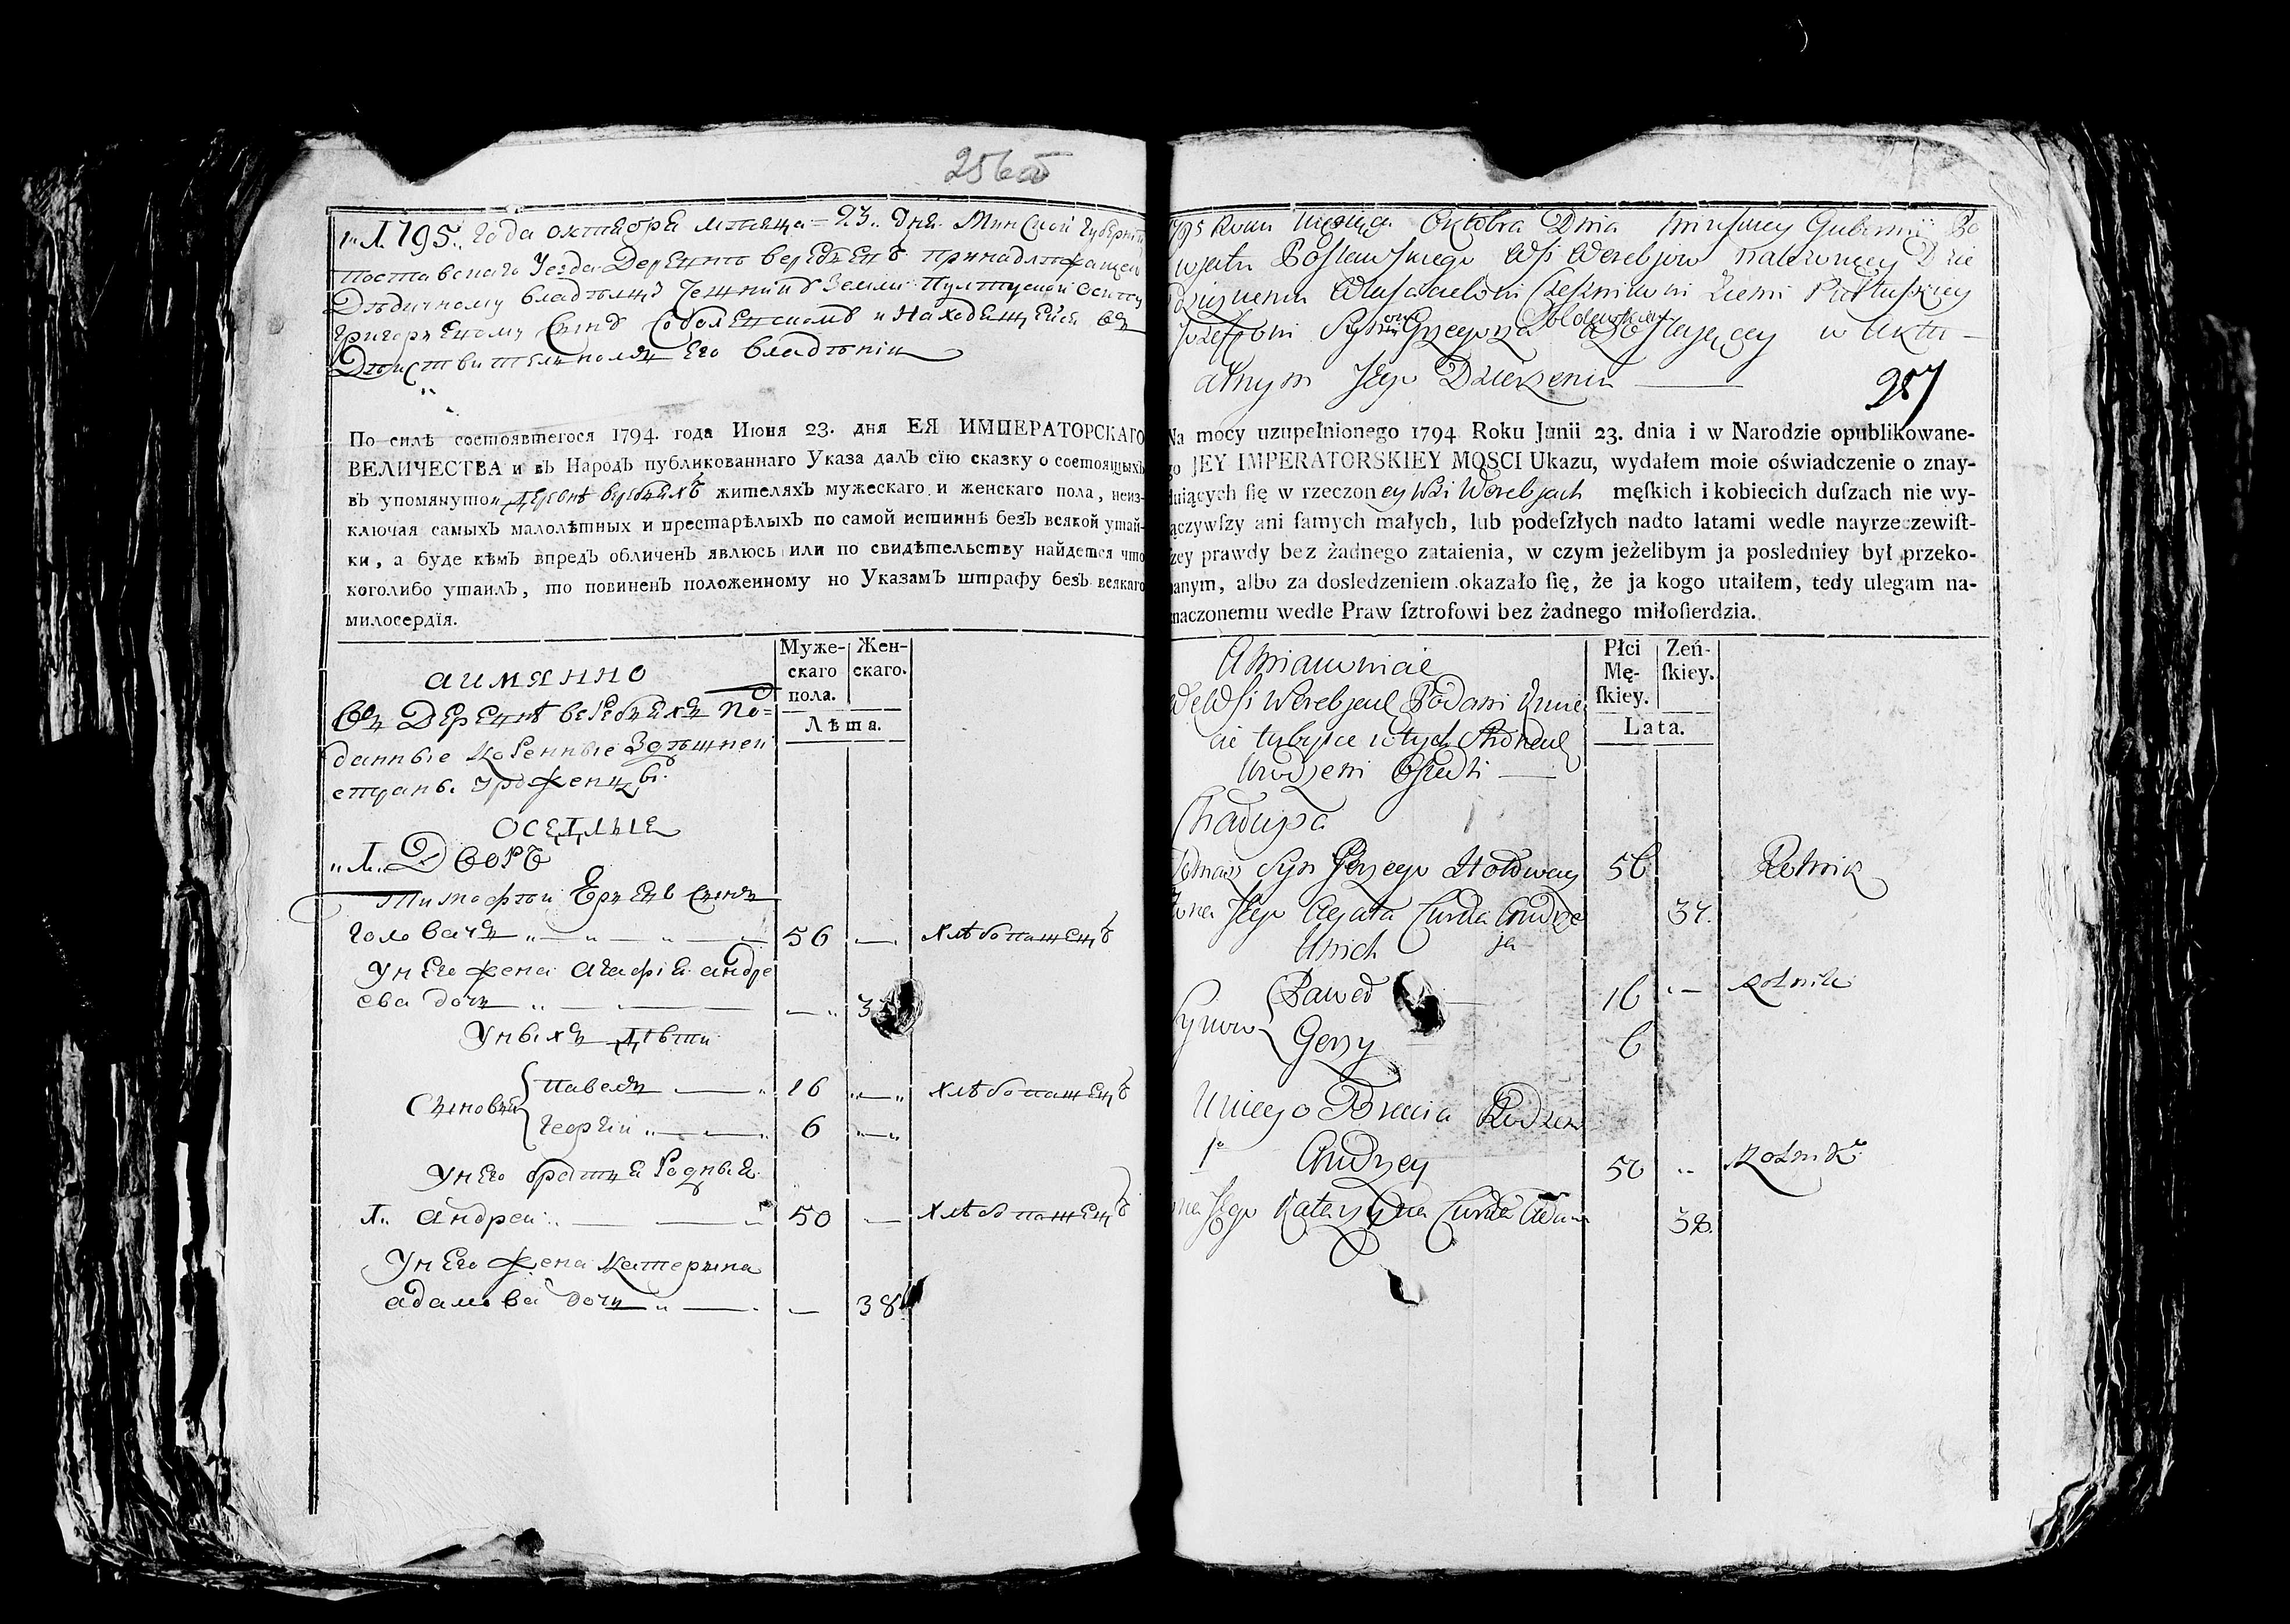 256об
1795. года октября месяца 23. Дня. Минской Губерніи
Поставскаго Уезда Деревни веребьевъ принадлежащей
Дѣдичному владѣльцу Чешнику Земли Пултуской
Григорьевому Сыну и находящейся въ
Дѣйствительномъ Его владѣніи
По силѣ состоявшегося 1794. года Июня 23. дня ЕЯ ИМПЕРАТОРСКАГО
ВЕЛИЧЕСТВА и въ Народъ публикованнаго Указа далъ сїю сказку о состоящыхъ
въ упомянутой деревне веребьехъ жителяхъ мужескаго и женскаго пола, неиз-
ключая самыхъ малолѣтныхъ и престарѣлыхъ по самой истиннѣ безъ всякой утай-
ки, а буде кѣмъ впредъ обличенъ явлюсь или по свидѣтельству найдется что
коголибо утаилъ, то повиненъ положенному по Указамъ штрафу безъ всякаго
милосердїя.
Муже-
скаго
пола.
Жен-
скаго.
Лѣта.
а имянно
Въ Деревнѣ веребьехъ по=
данные коренные здѣшней
урожен
оседлые
1. Дворъ
Тимофей Сынъ
Головачъ 56 — хлѣбопашецъ
У него жена агафія андре
ева дочь — 3
У ныхъ дѣти
Сыновья
павелъ 16 — хлѣбопашецъ
георгій 6 —
У него братья родныя
1. андрей 50 — хлѣбопашецъ
У него жена катерына
адамова дочь — 38
1795 Roku Miesiąca Oktobra Dnia Minskiey Gubernii Po
wiatu Postawskiego Wsi Werebjow należoncey Dzie
Ziemi Pułtuskiey
Jozefowi Synowi Grzegorza w aktu
alnym Jego Dzierżeniu
257
Na mocy uzupełnionego 1794 Roku Junii 23. dnia i w Narodzie opublikowane-
go JEY IMPERATORSKIEY MOSCI Ukazu, wydałem moie oświadczenie o znay-
duiących ſię w rzeczoney Wsi Werebjach męſkich i kobiecich duſzach nie wy-
ączywſzy ani ſamych małych, lub podeſzłych nadto latami wedle nayrzeczewiſt-
zey prawdy bez żadnego zataienia, w czym jeżelibym ja posledniey był przeko-
anym, albo za dosledzeniem okazało ſię, że ja kogo utaiłem, tedy ulegam na-
naczonemu wedle Praw ſztrofowi bez żadnego miłoſierdzia.
Płci
Mę-
ſkiey.
Zeń-
ſkiey.
Lata.
A mianowicie
We Wsi Werebjach Poddani
Urodzeni Osiedli
Chałupa
Tomasz Syn 56 Rolnik
Żona Jego Agata Curka Andrze
ja 37.
U nich
Synow
Paweł 16 — Rolnik
Gerzy 6
U niego Bracia Rodzen
1o Andrzey 50 Rolnik
na Jego Katarzyna Curka Adama 38.